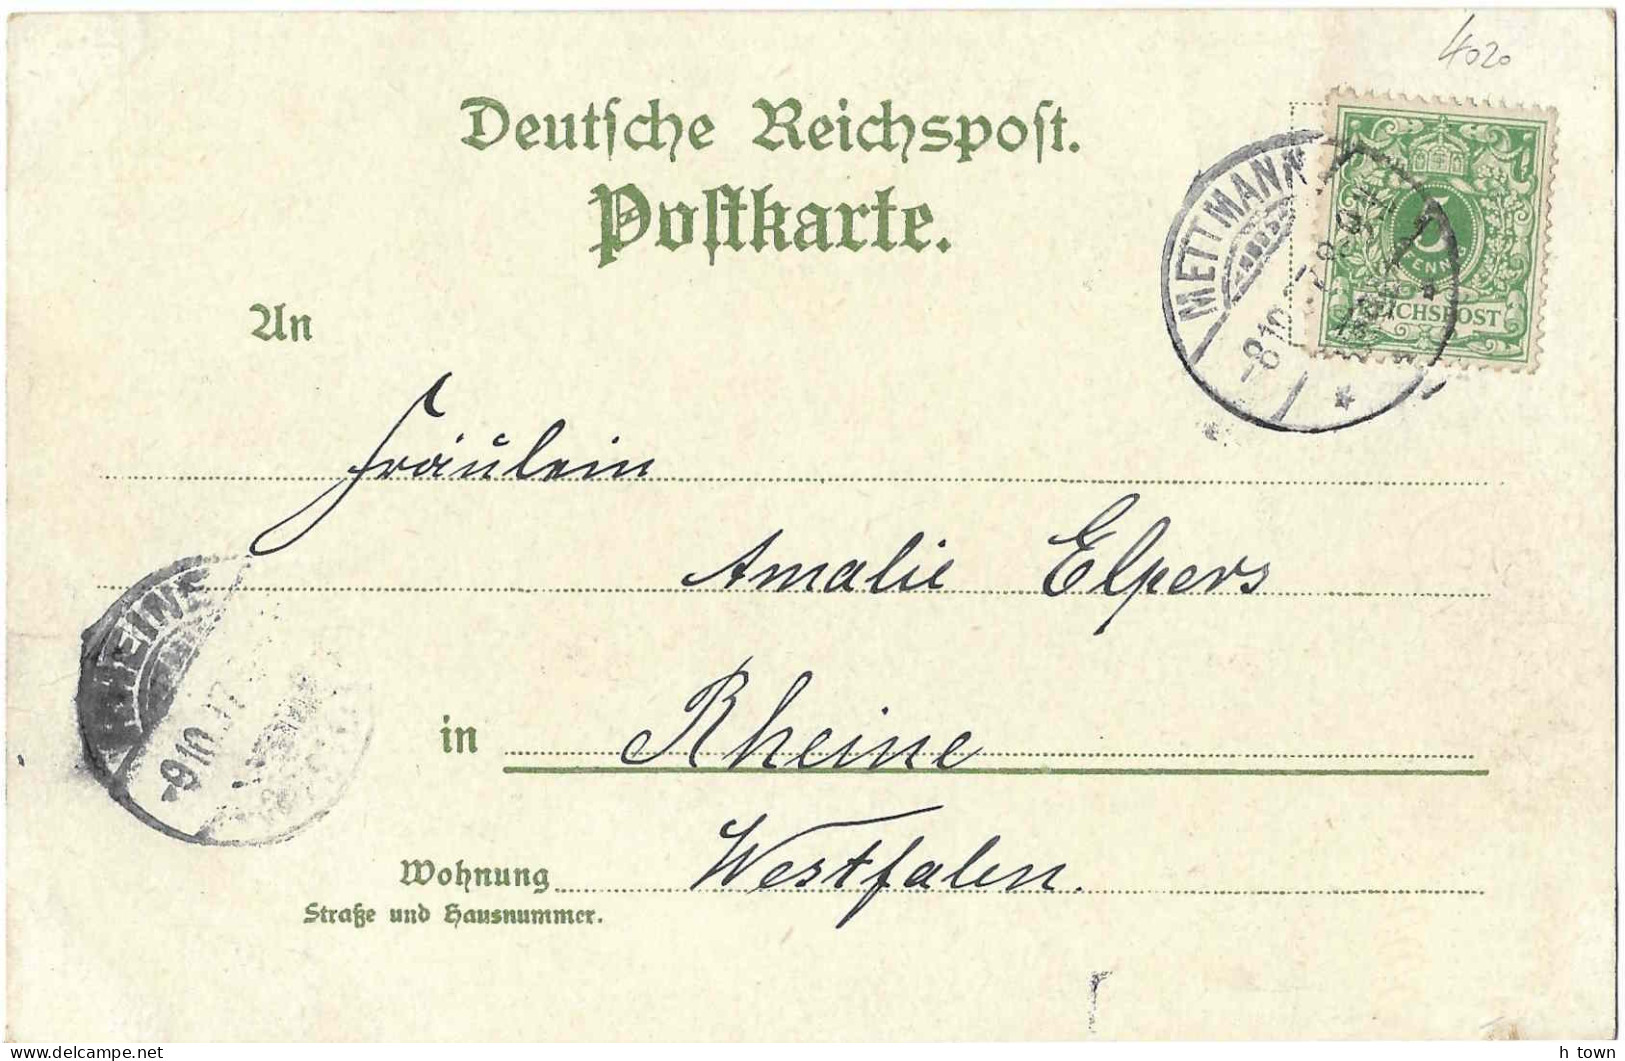 4020
Deutsche Reichspost.
Postkarte.
METTMANN
8 10
5
PFENNIG
REICHSPOST
An
Fräulein
Amalie Elpers
RHEINE
9 10 97
in Rheine
Wohnung Westfalen.
Straße und Hausnummer.
h town